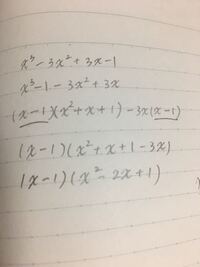 x³-3x²+3x-1
x³-1-3x²+3x
(x-1)(x²+x+1)-3x(x-1)
(x-1)(x²+x+1-3x)
(x-1)(x²-2x+1)